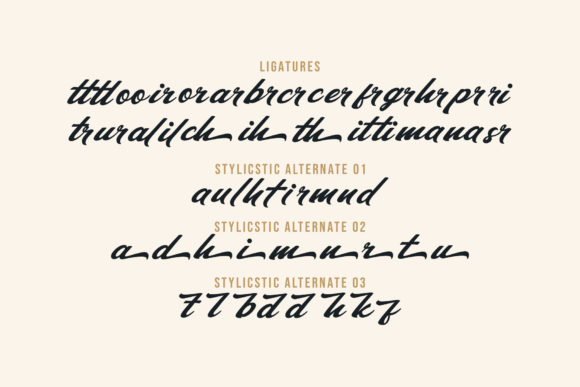 LIGATURES
tttlooirorarbrcrcerfrgrhrprri
truralilch ih th ittimanasr
STYLICSTIC ALTERNATE 01
aulhtirmnd
STYLICSTIC ALTERNATE 02
a d h i m n r t u
STYLICSTIC ALTERNATE 03